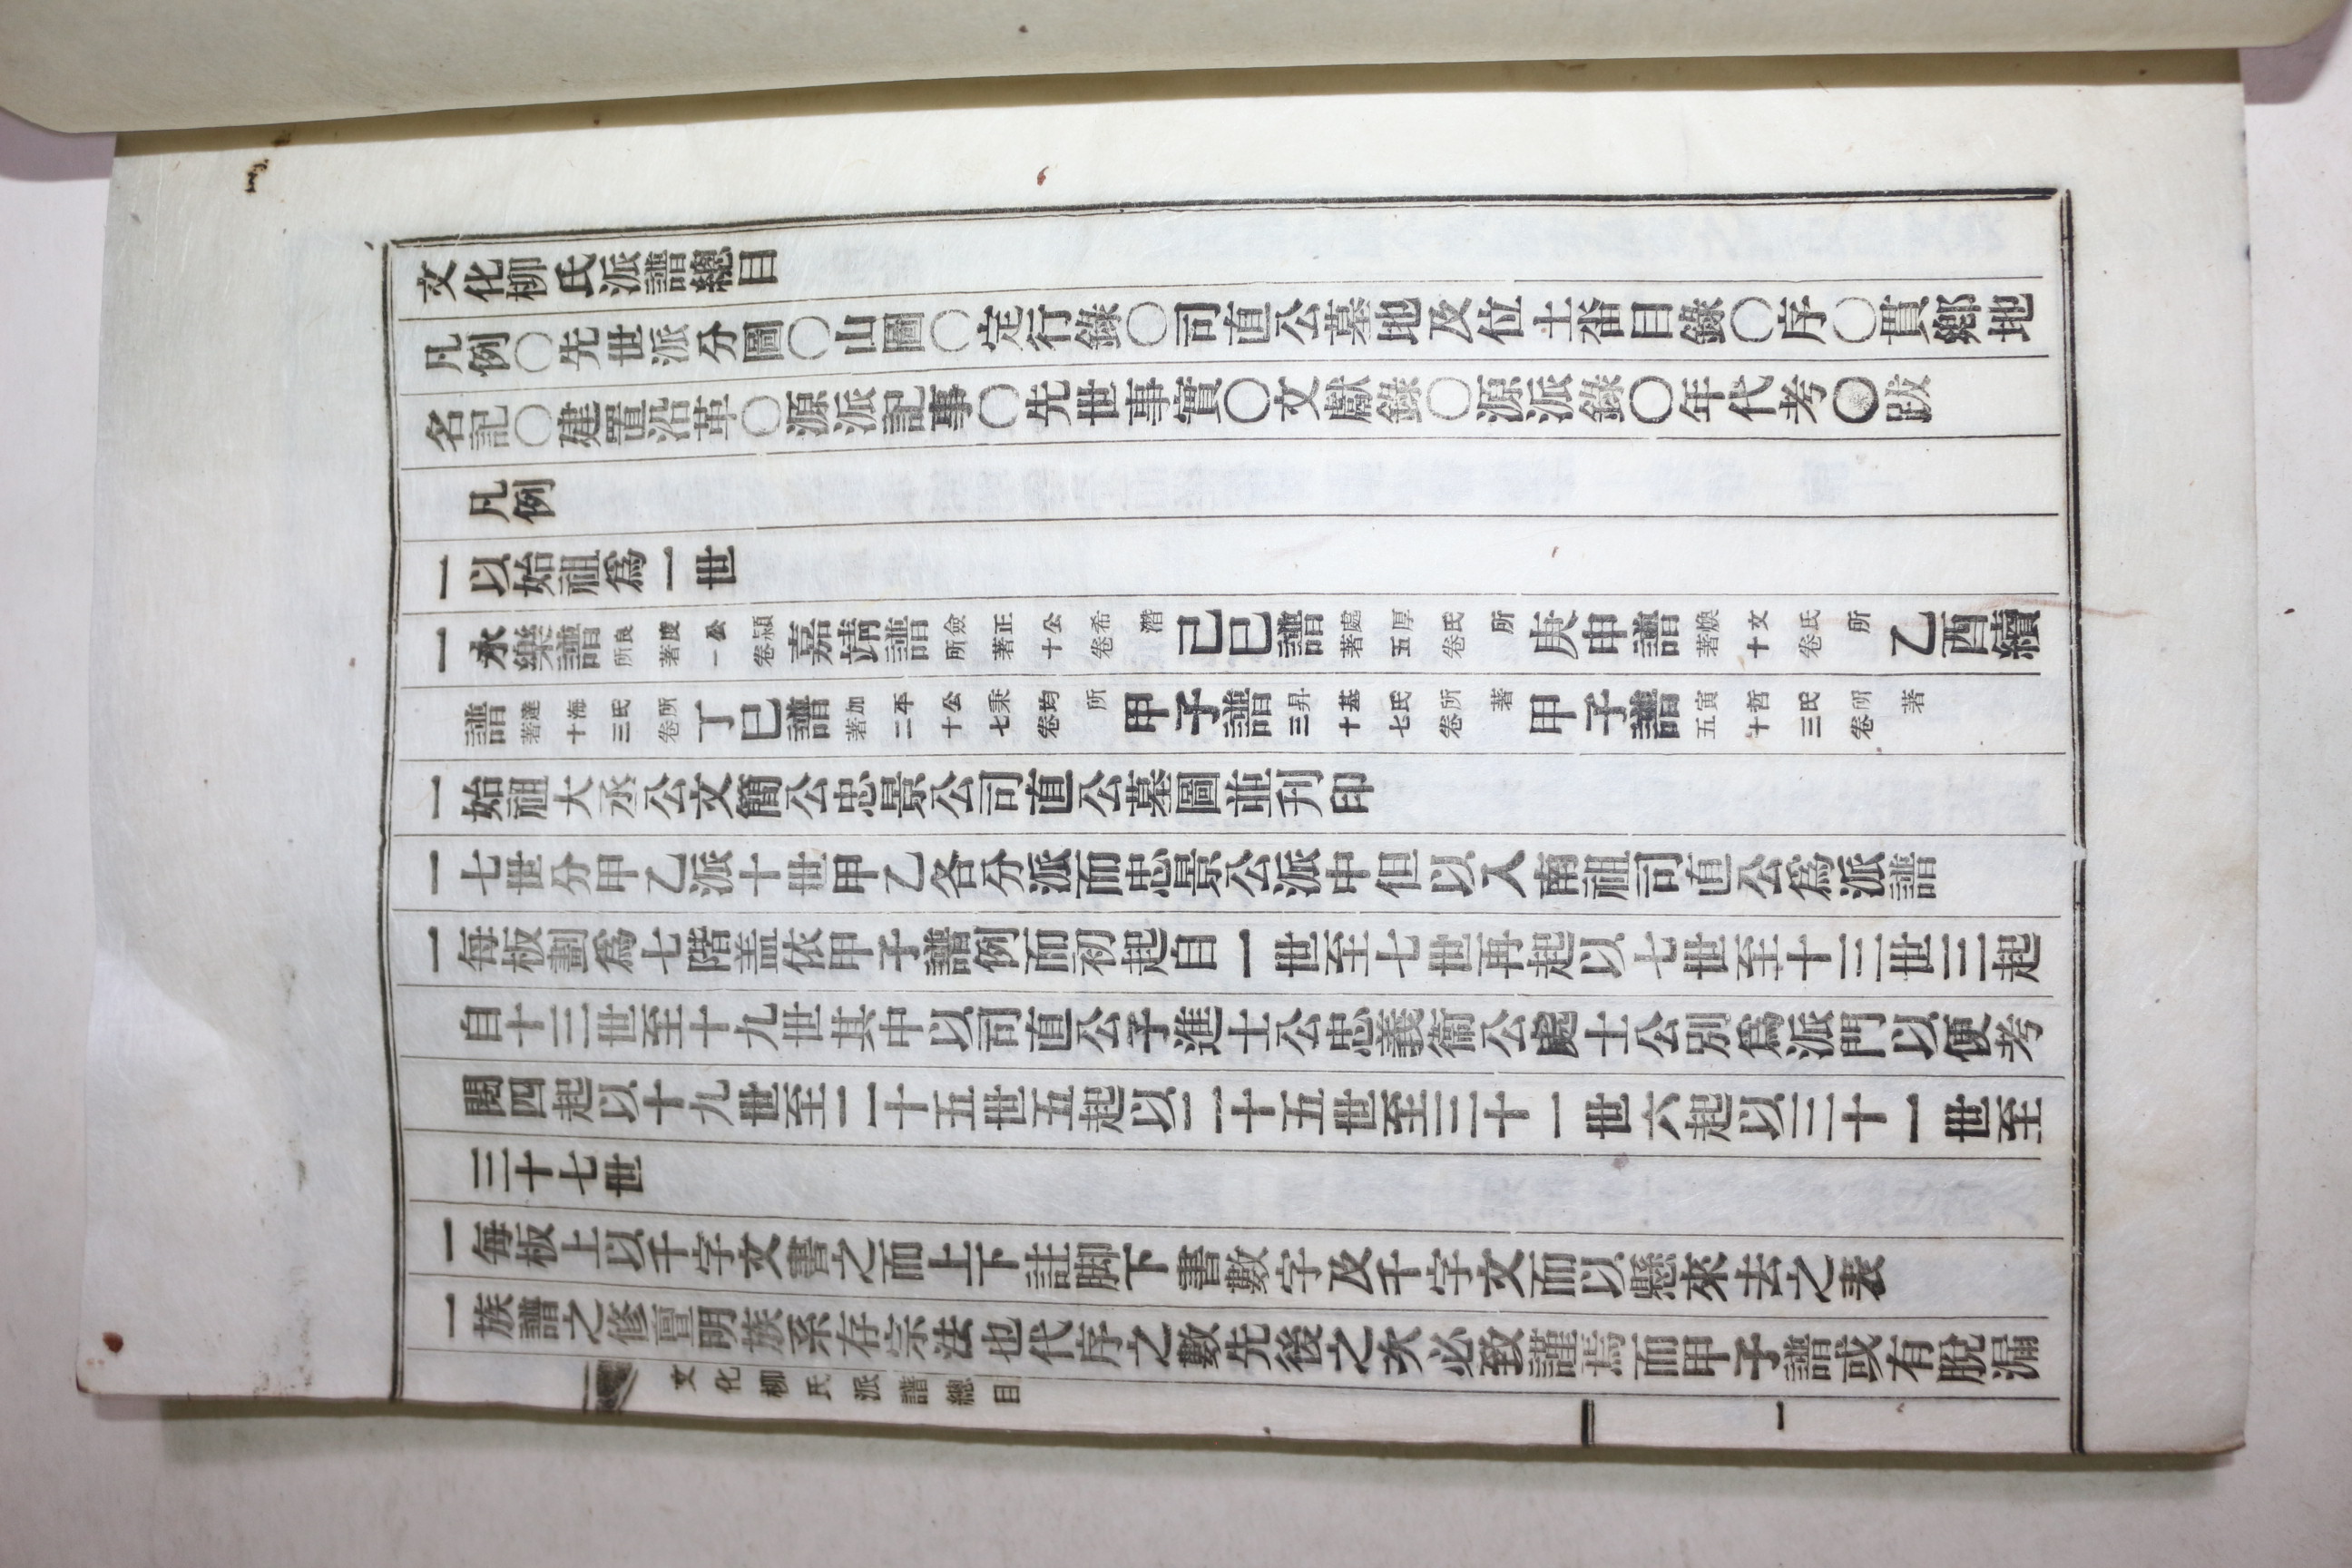 文化柳氏派譜總目
凡例○先世派分圖○山圖○定行錄○司直公墓地及位土畓目錄○序○貫鄉地
名記○建置沿革○源派記事○先世事實○文獻錄○源派錄○年代考○跋
凡例
一以始祖爲一世
一永樂譜良度公穎所著一卷嘉靖譜僉正公希潛所著十卷己巳譜處厚氏所著五卷庚申譜煥文氏所著十卷乙酉續
譜達海氏所著十三卷丁巳譜加平公秉均所著二十七卷甲子譜昇基氏所著三十七卷甲子譜寅哲氏所著五十三卷
一始祖大丞公文簡公忠景公司直公墓圖並刊印
一七世分甲乙派十世甲乙各分派而忠景公派中但以入南祖司直公爲派譜
一每板劃爲七階盖依甲子譜例而初起自一世至七世再起以七世至十三世三起
自十三世至十九世其中以司直公子進士公忠義衛公處士公別爲派門以便考
閱四起以十九世至二十五世五起以二十五世至三十一世六起以三十一世至
三十七世
一每板上以千字文書之而上下註脚下書數字及千字文而以懸來去之表
一族譜之修亶明族系存宗法也代序之數先後之次必致謹焉而甲子譜或有脫漏
文化柳氏派譜總目 一